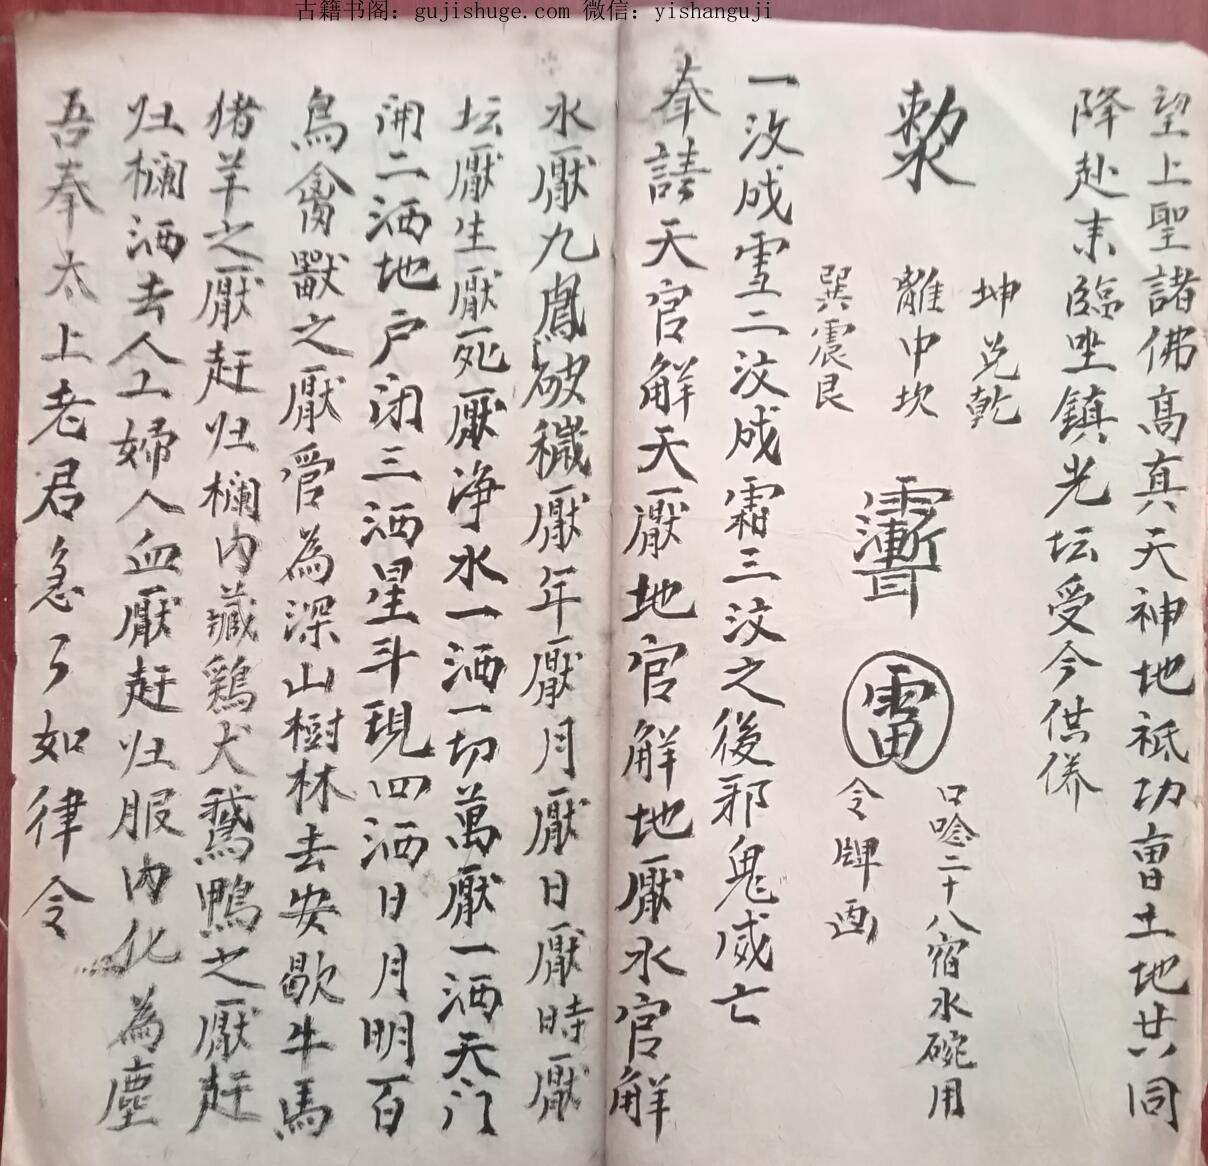 古籍书阁：gujishuge.com 微信：yishanguji
望上聖諸佛髙真天神地祇功曺土地共同
降赴来臨坐鎮光坛受今供俻
坤兑乾
勅
離中坎
巽震艮
雷
口唸二十八宿水碗用
令牌画
一汶成雪二汶成霜三汶之後邪鬼威亡
奉請天官解天厭地官解地厭水官解
水厭九鳳破穢厭年厭月厭日厭時厭
坛厭生厭死厭净水一洒一切萬厭一洒天门
開二洒地户闭三洒星斗現四洒日月明百
鳥禽獸之厭當為深山樹林去安歇牛馬
猪羊之厭赶归欄内藏鷄犬鵞鴨之厭赶
归欄洒去人工婦人血厭赶归服内化為塵
吾奉太上老君急々如律令